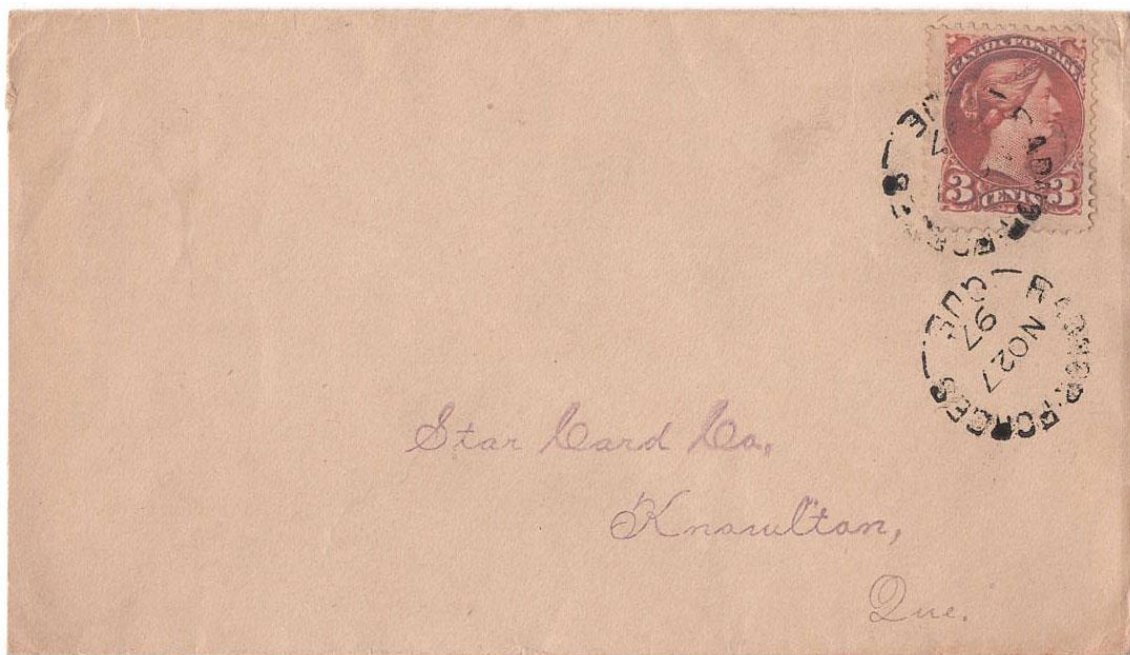 CANADA POSTAGE
3 CENTS 3
RADNOR FORGES
QUE
RADNOR FORGES
NO 27
97
QUE
Star Card Co.
Knowlton,
Que.